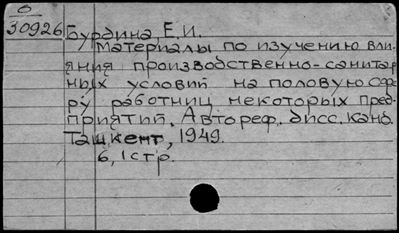 О
30926
Бурдина, Е.И.
Материалы по изучению вли-
яния производственно-санитар
ных условий на половую сфе
ру работниц некоторых пред-
приятий. Автореф. дисс. канд.
Ташкент, 1949.
6, 1 стр.